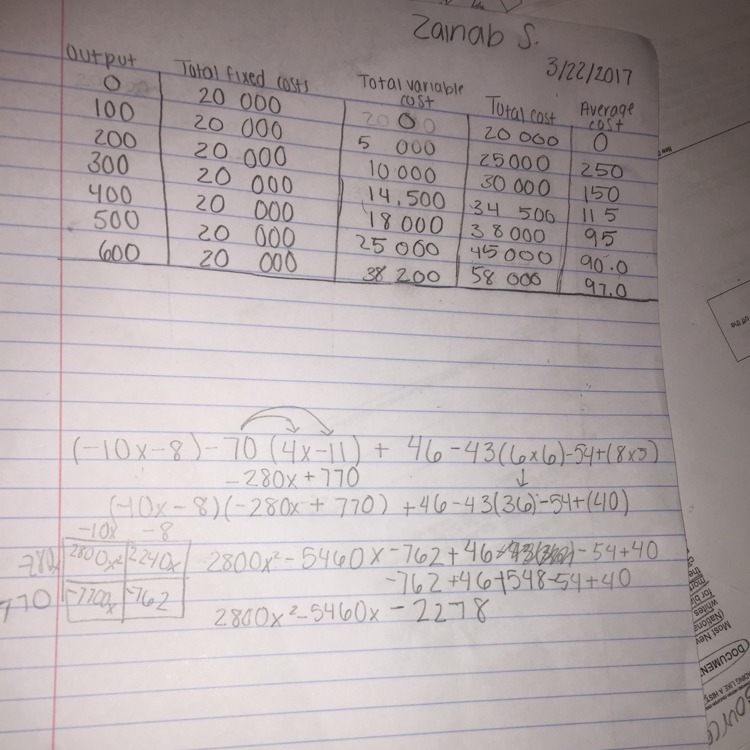 Zainab S.
3/22/2017
Output Total fixed costs Total variable cost Total cost Average cost
0 20 000 0 20 000 0
100 20 000 5 000 25000 250
200 20 000 10 000 30 000 150
300 20 000 14,500 34 500 115
400 20 000 18 000 38 000 95
500 20 000 25 000 45 000 90.0
600 20 000 38 200 58 000 97.0
(-10x-8)-70(4x-11)+ 46-43(6x6)-54+(8x5)
-280x+770
(-10x-8)(-280x+770) +46-43(36)-54+(40)
-10x -8
2800x² 2240x 2800x²-5460x-762+46 -54+40
770 -7700x -762 -762+46+1548-54+40
2800x²-5460x-2278
DOCUMEN